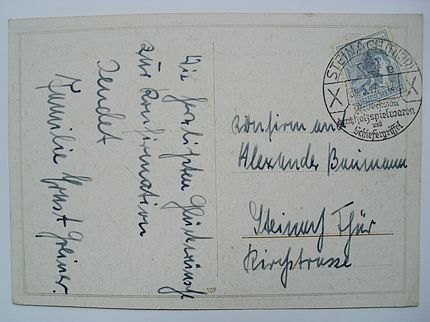 Die herzlichsten Glückwünsche
zur Konfirmation
sendet
Familie Ernst Greiner.
STEINACH (THÜR)
Holzspielwaren
und
Schiefergriffel
Konfirmand
Alexander Baumann
Steinach Thür
Kirchstrasse
109